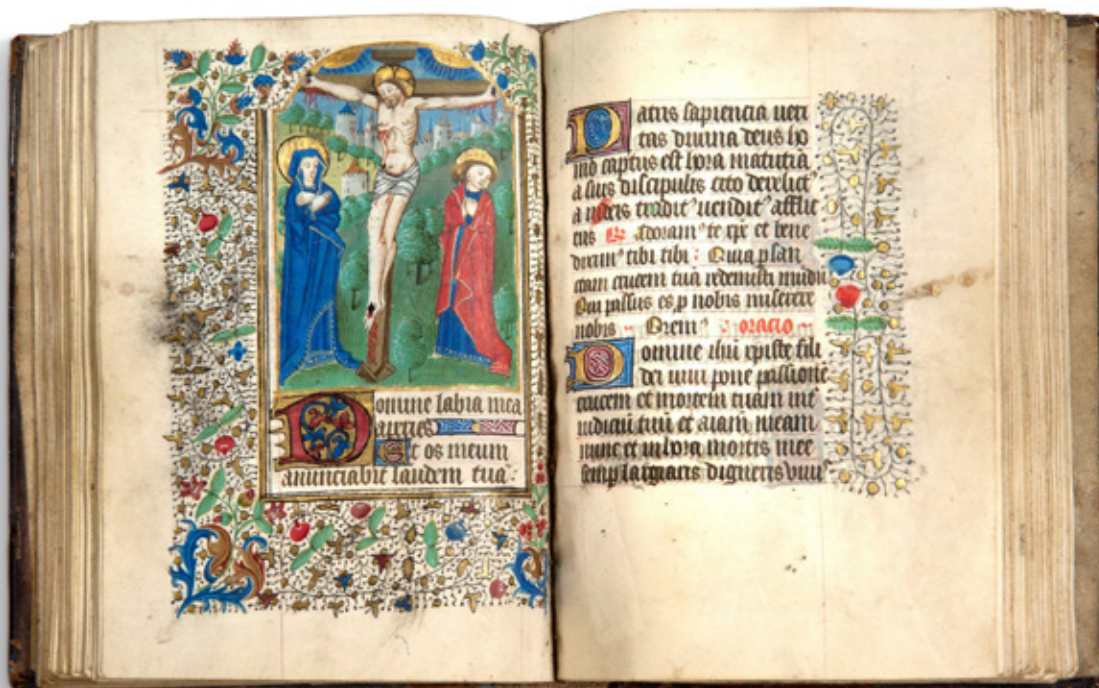 Domine labia mea
aperies
Et os meum
anunciabit laudem tuā.
Patris sapiencia veri
tas divina deus ho
mo captus est hora matutīa
a suis discipulis cito derelict᾽
a iudeis tradit᾽ vendit᾽ afflic
tus Adoram᾽ te xp̄e et bene
dicim᾽ tibi tibi : Quia p̲ san
ctam crucem tuā redemisti mūdū
Qui passus es p̲ nobis miserere
nobis Orem᾽ oratio
Domine ihū xpiste fili
dei vivi pone passionē
crucem et mortem tuam int᾽
iudiciū tuū et aīam meam
nunc et in hora mortis mee
et largiaris digneris vivi